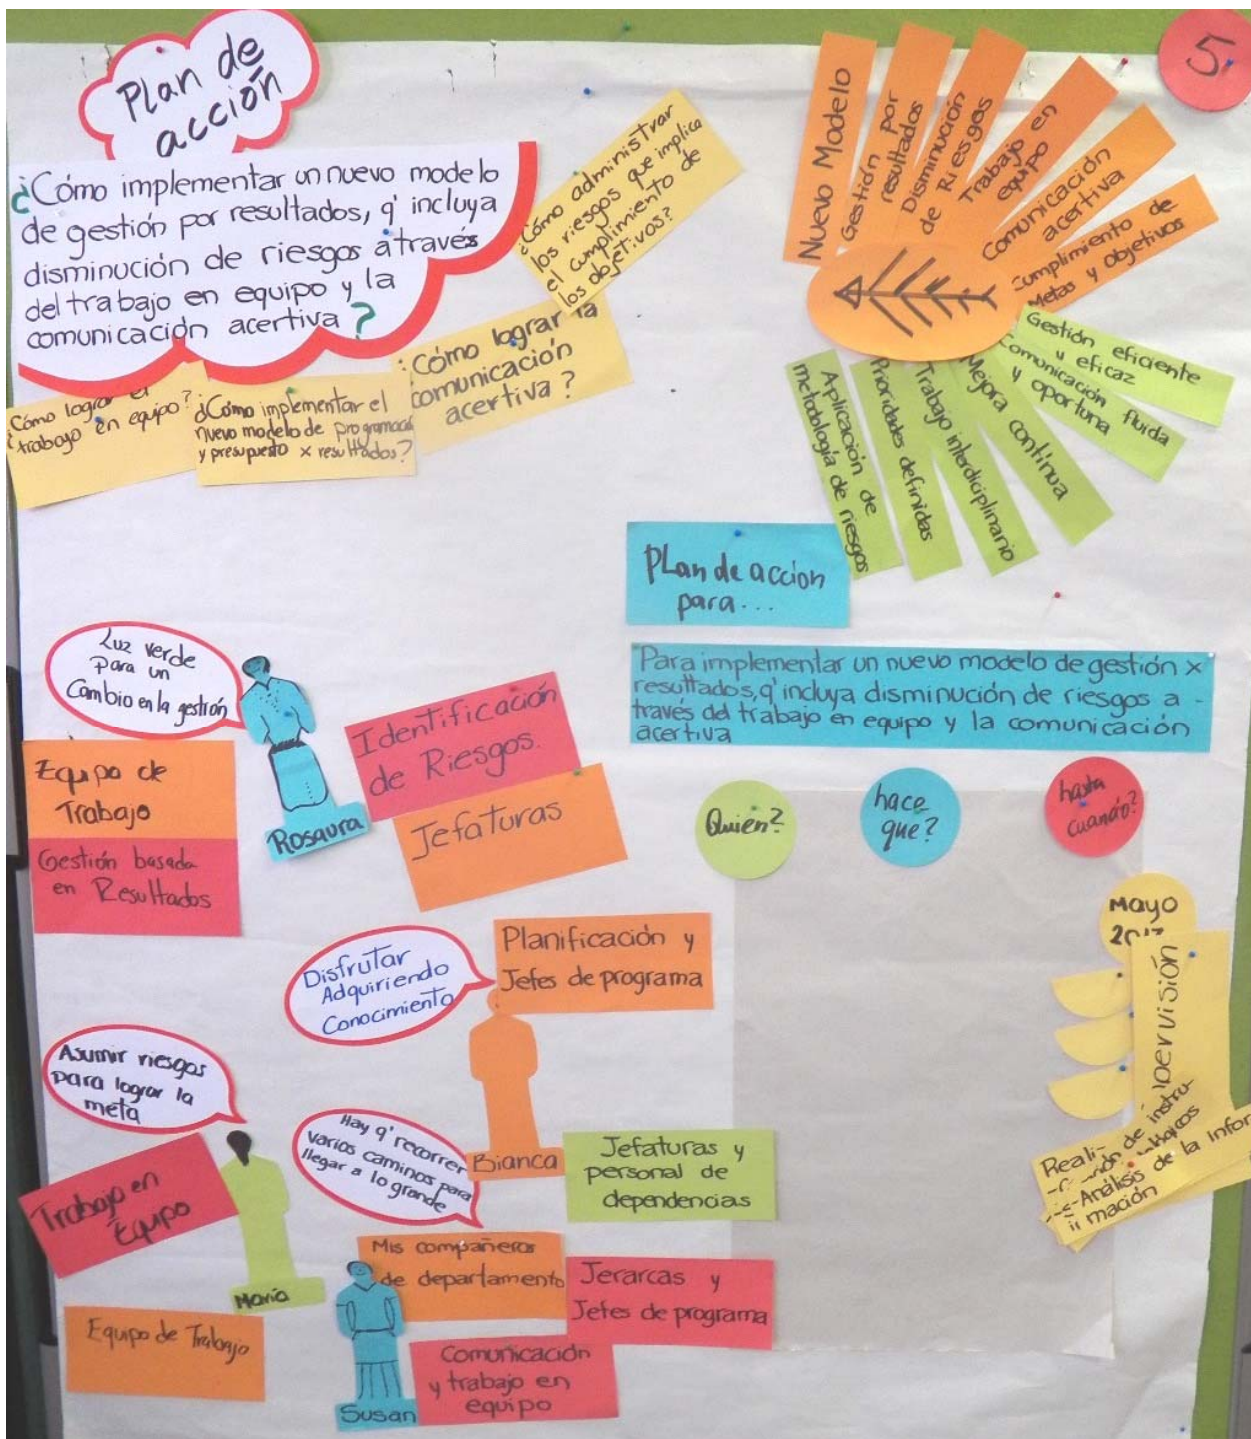 Plan de
acción
5.
¿Cómo implementar un nuevo modelo
de gestión por resultados, q' incluya
disminución de riesgos através
del trabajo en equipo y la
comunicación acertiva?
¿Cómo administrar
los riesgos que implica
el cumplimiento de
los objetivos?
Cómo lograr la
comunicación
acertiva?
¿Cómo lograr el
trabajo en equipo?
¿Cómo implementar el
nuevo modelo de programació
y presupuesto x resultados?
Nuevo Modelo
Gestión por
resultados
Disminución
de Riesgos
Trabajo en
equipo
Comunicación
acertiva
Cumplimiento de
Metas y Objetivos
Gestión eficiente
y eficaz
Comunicación fluida
y oportuna
Mejora continua
Trabajo interdiciplinario
Prioridades definidas
Aplicación de
metodología de riesgos
PLan de accion
para...
Para implementar un nuevo modelo de gestión x
resultados, q' incluya disminución de riesgos a-
través del trabajo en equipo y la comunicación
acertiva
Quien?
hace
que?
hasta
cuando?
Mayo
Luz verde
para un
Cambio en la gestión
Rosaura
Identificación
de Riesgos.
Jefaturas
Equipo de
Trabajo
Gestión basada
en Resultados
Disfrutar
Adquiriendo
Conocimiento
Planificación y
Jefes de programa
Bianca
Jefaturas y
personal de
dependencias
Asumir riesgos
para lograr la
meta
Trabajo en
Equipo
María
Equipo de Trabajo
Hay q' recorrer
varios caminos para
llegar a lo grande
Mis compañeros
de departamento
Jerarcas y
Jefes de programa
Comunicación
y trabajo en
equipo
Susan
de instru-
-Análisis de la infor
mación